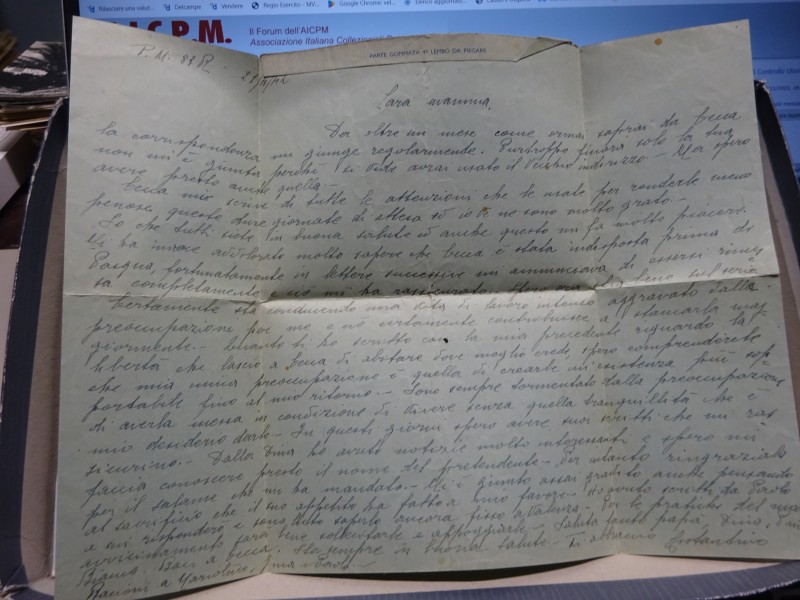 Rilasciare una valut...
Delcampe
Regio Esercito - MV...
Google Chrome: vel...
Elenco aggiornato...
Il Forum dell'AICPM
Associazione Italiana Collezionisti
PARTE GOMMATA 4° LEMBO DA PIEGARE
P. M. 83
Cara mamma,
Da oltre un mese come ormai saprai da Becca
la corrispondenza mi giunge regolarmente. Purtroppo finora solo la tua
non mi è giunta perchè si vede avrai usato il vecchio indirizzo – Ma spero
avere presto anche quella –
Becca mi scrive di tutte le attenzioni che le usate per renderle meno
penose queste dure giornate di attesa ed io Vi ne sono molto grato –
So che tutti siete in buona salute ed anche questo mi fa molto piacere.
Mi ha invece addolorato molto sapere che Becca è stata indisposta prima di
Pasqua, fortunatamente in lettere successive mi annunciava di essersi rimes
sa completamente e ciò mi ha rassicurato.
Certamente sta conducendo una vita di lavoro intenso aggravato dalla
preoccupazione per me e ciò certamente contribuisce a stancarla mag
giormente – Quanto ti ho scritto con la mia precedente riguardo la
libertà che lascio a Becca di abitare dove meglio crede, spero comprenderete
che mia unica preoccupazione è quella di crearle un'esistenza più sop
portabile fino al mio ritorno – Sono sempre tormentato dalla preoccupazione
di averla messa in condizione di vivere senza quella tranquillità che è
mio desiderio darle – In questi giorni spero avere suoi scritti che mi ras
sicurino – Dalla Dina ho avuto notizie molto interessanti e spero mi
faccia conoscere presto il nome del pretendente – Per intanto ringraziala
per il salame che mi ha mandato – Mi è giunto assai gradito anche pensando
al sacrificio che il suo appetito ha fatto a mio favore – Ho avuto scritti da Paolo
a cui risponderò e sono lieto saperlo ancora fisso – Per le pratiche del mio
avvicinamento farà bene sollecitarle e appoggiarle – Saluta tanto papà, Dino,
Bianca. Baci a Becca. Sta sempre in buona salute – Ti abbraccio Costantino
Bacioni a